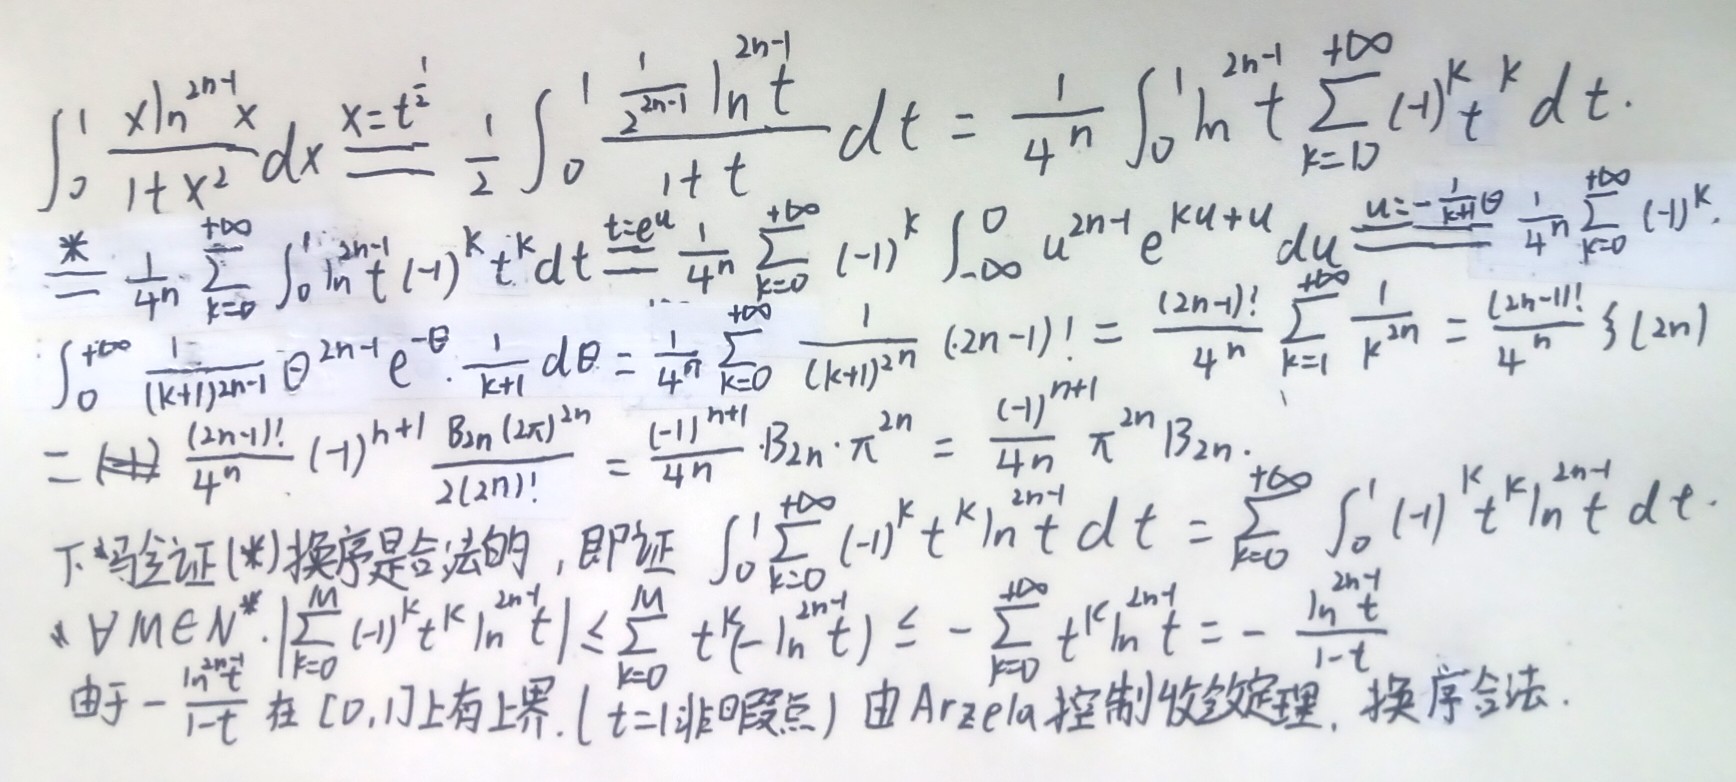 ∫₀¹ \frac{x\ln^{2n-1}x}{1+x^2}dx \xlongequal{x=t^{\frac{1}{2}}} \frac{1}{2}∫₀¹ \frac{\frac{1}{2^{2n-1}}\ln^{2n-1}t}{1+t}dt = \frac{1}{4^n}∫₀¹ \ln^{2n-1}t \sum_{k=0}^{+∞}(-1)^k t^k dt.
\xlongequal{*} \frac{1}{4^n}\sum_{k=0}^{+∞}∫₀¹ \ln^{2n-1}t (-1)^k t^k dt \xlongequal{t=e^u} \frac{1}{4^n}\sum_{k=0}^{+∞}(-1)^k ∫_{-∞}^0 u^{2n-1}e^{ku+u}du \xlongequal{u=-\frac{1}{k+1}θ} \frac{1}{4^n}\sum_{k=0}^{+∞}(-1)^k.
∫_0^{+∞} \frac{1}{(k+1)^{2n-1}}θ^{2n-1}e^{-θ}.\frac{1}{k+1}dθ = \frac{1}{4^n}\sum_{k=0}^{+∞}\frac{1}{(k+1)^{2n}}(2n-1)! = \frac{(2n-1)!}{4^n}\sum_{k=1}^{+∞}\frac{1}{k^{2n}} = \frac{(2n-1)!}{4^n}ζ(2n)
= \frac{(2n-1)!}{4^n}(-1)^{n+1}\frac{B_{2n}(2π)^{2n}}{2(2n)!} = \frac{(-1)^{n+1}}{4n}·B_{2n}·π^{2n} = \frac{(-1)^{n+1}}{4n}π^{2n}B_{2n}.
下验证(*)换序是合法的,即证 ∫₀¹\sum_{k=0}^{+∞}(-1)^k t^k \ln^{2n-1}t dt = \sum_{k=0}^{+∞}∫₀¹(-1)^k t^k \ln^{2n-1}t dt.
∀M∈N^*.|\sum_{k=0}^{M}(-1)^k t^k \ln^{2n-1}t| ≤ \sum_{k=0}^{M} t^k(-\ln^{2n-1}t) ≤ -\sum_{k=0}^{+∞}t^k \ln^{2n-1}t = -\frac{\ln^{2n-1}t}{1-t}
由于 -\frac{\ln^{2n-1}t}{1-t} 在[0,1]上有上界.(t=1非暇点)由Arzela控制收敛定理,换序合法.